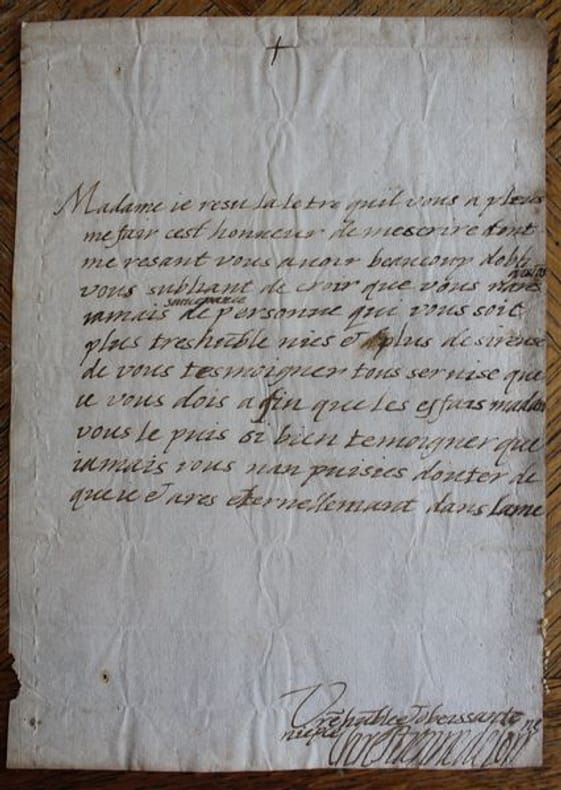 Madame ie resu la letre quil vous a pleus
me fair cest honneur de mescrire dont
me resant vous auoir beaucoup dobli
vous subliant de croir que vous
iamais de personne qui vous soit
plus treshüble nies et plus desireuse
de vous tesmoigner tous seruise que
ie vous dois afin que les effais madam
vous le puis si bien temoigner que
iamais vous nan puisies douter de
que ie ares eternellemant dans lame
Vre hüble et obeissante
niepce